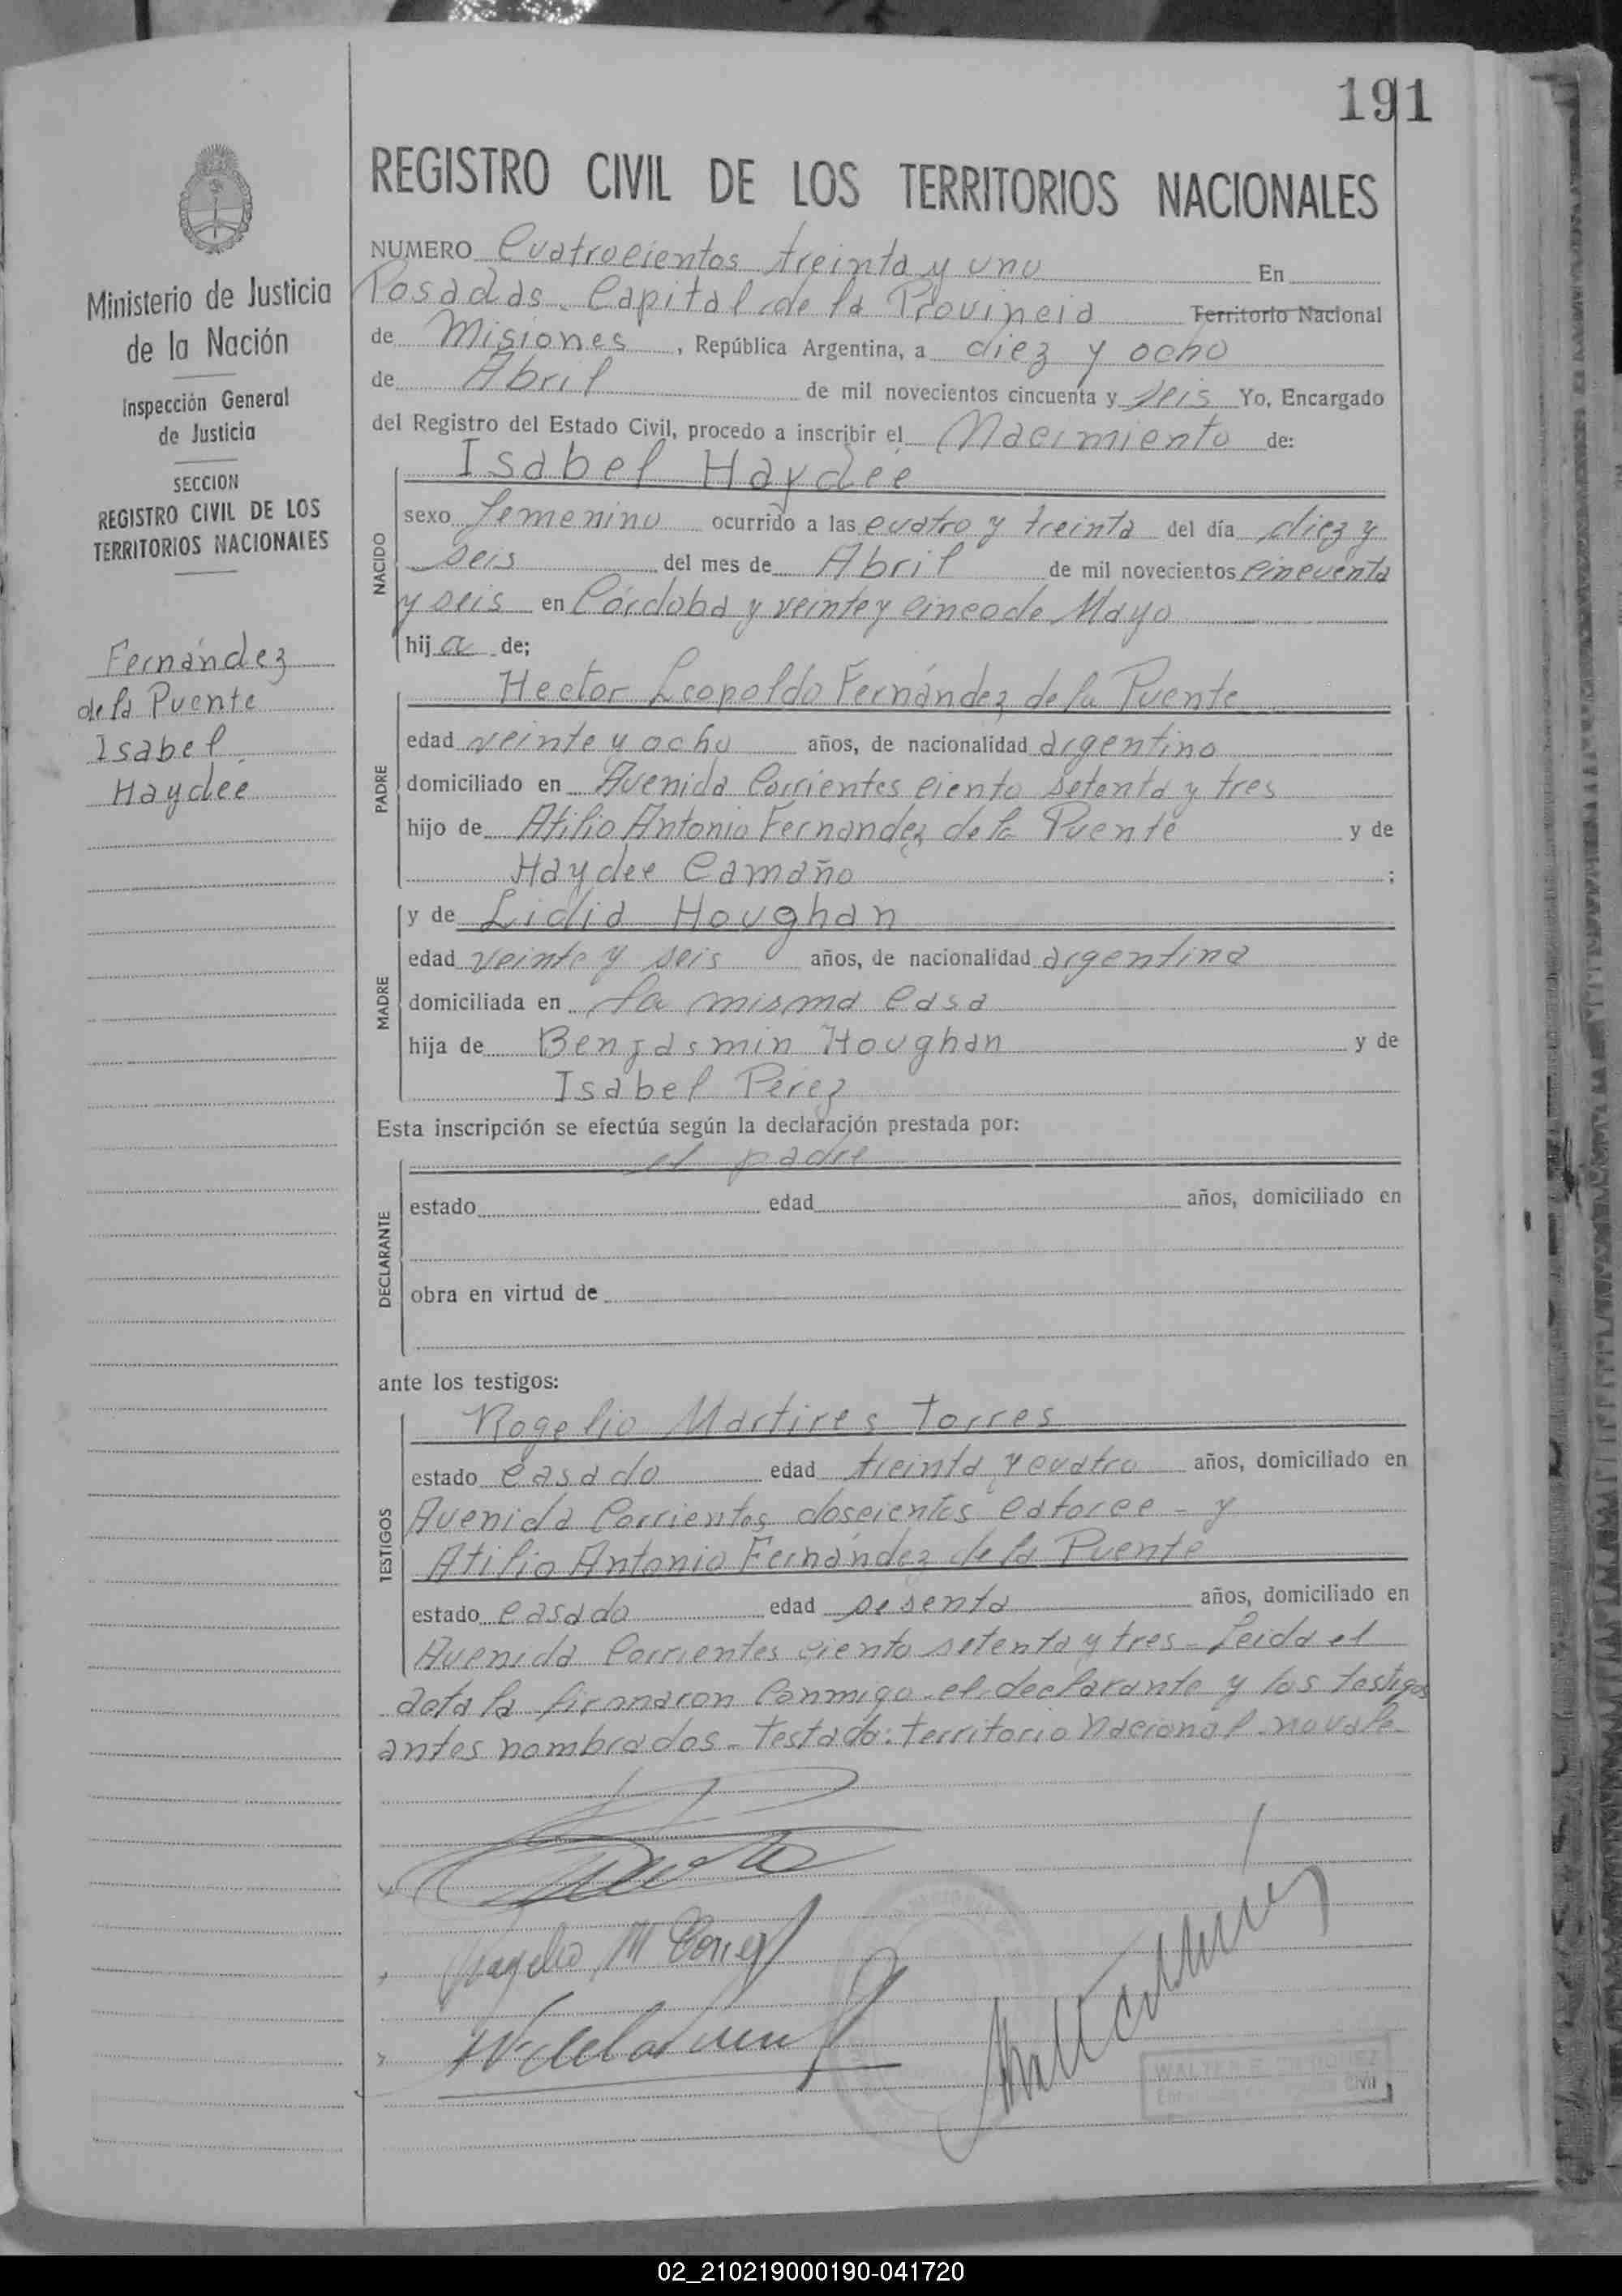 191
REGISTRO CIVIL DE LOS TERRITORIOS NACIONALES
Ministerio de Justicia
de la Nación
Inspección General
de Justicia
SECCION
REGISTRO CIVIL DE LOS
TERRITORIOS NACIONALES
Fernández
de la Puente
Isabel
Haydeé
NUMERO Cuatrocientos treinta y uno En
Posadas. Capital de la Provincia Territorio Nacional
de Misiones, República Argentina, a diez y ocho
de Abril de mil novecientos cincuenta y seis Yo, Encargado
del Registro del Estado Civil, procedo a inscribir el Nacimiento de:
NACIDO
Isabel Haydeé
sexo femenino ocurrido a las cuatro y treinta del día diez y
seis del mes de Abril de mil novecientos cincuenta
y seis en Córdoba y veinte y cinco de Mayo
hija de;
PADRE
Hector Leopoldo Fernández de la Puente
edad veinte y ocho años, de nacionalidad argentino
domiciliado en Avenida Corrientes ciento setenta y tres
hijo de Atilio Antonio Fernandez de la Puente y de
Haydee Camaño ;
MADRE
y de Lidia Houghan
edad veinte y seis años, de nacionalidad argentina
domiciliada en la misma casa
hija de Benjasmin Houghan y de
Isabel Pérez
Esta inscripción se efectúa según la declaración prestada por:
DECLARANTE
el padre
estado edad años, domiciliado en
obra en virtud de
ante los testigos:
TESTIGOS
Rogelio Martires Torres
estado casado edad treinta y cuatro años, domiciliado en
Avenida Corrientes doscientos catorce - y
Atilio Antonio Fernández de la Puente
estado casado edad sesenta años, domiciliado en
Avenida Corrientes ciento setenta y tres - Leida el
acta la firmaron conmigo el declarante y los testigos
antes nombrados - Testado: Territorio Nacional - no vale -
Rogelio M Torres
WALTER E.
CIVIL
02_210219000190-041720